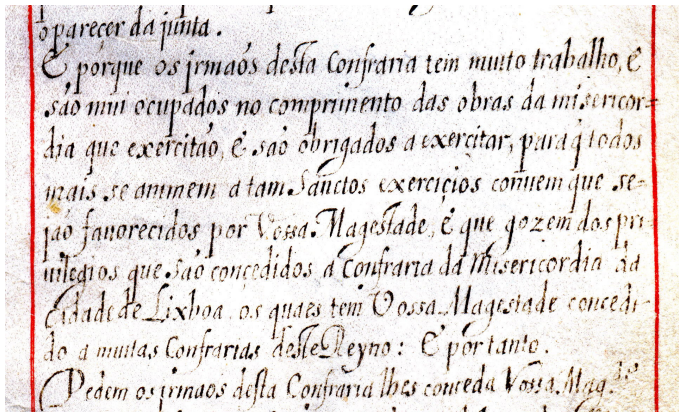 o parecer da junta.
E porque os jrmaõs desta Confraria tem muito trabalho, é
são mui ocupados no comprimento das obras da misericor=
dia que exercitão, é são obrigados a exercitar, para q̃ todos
mais se animem a tam Sanctos exerciçios comuem que se=
jaõ fauorecidos por Vossa Magestade, é que gozem dos pri
uilegios que são conçedidos a Confraria da Misericordia da
Cidade de Lixboa, os quaes tem Vossa Magestade concedi-
do a muitas Confrarias deste Reyno: E por tanto.
Pedem os jrmaos desta Confraria lhes conceda Vossa Mag.de